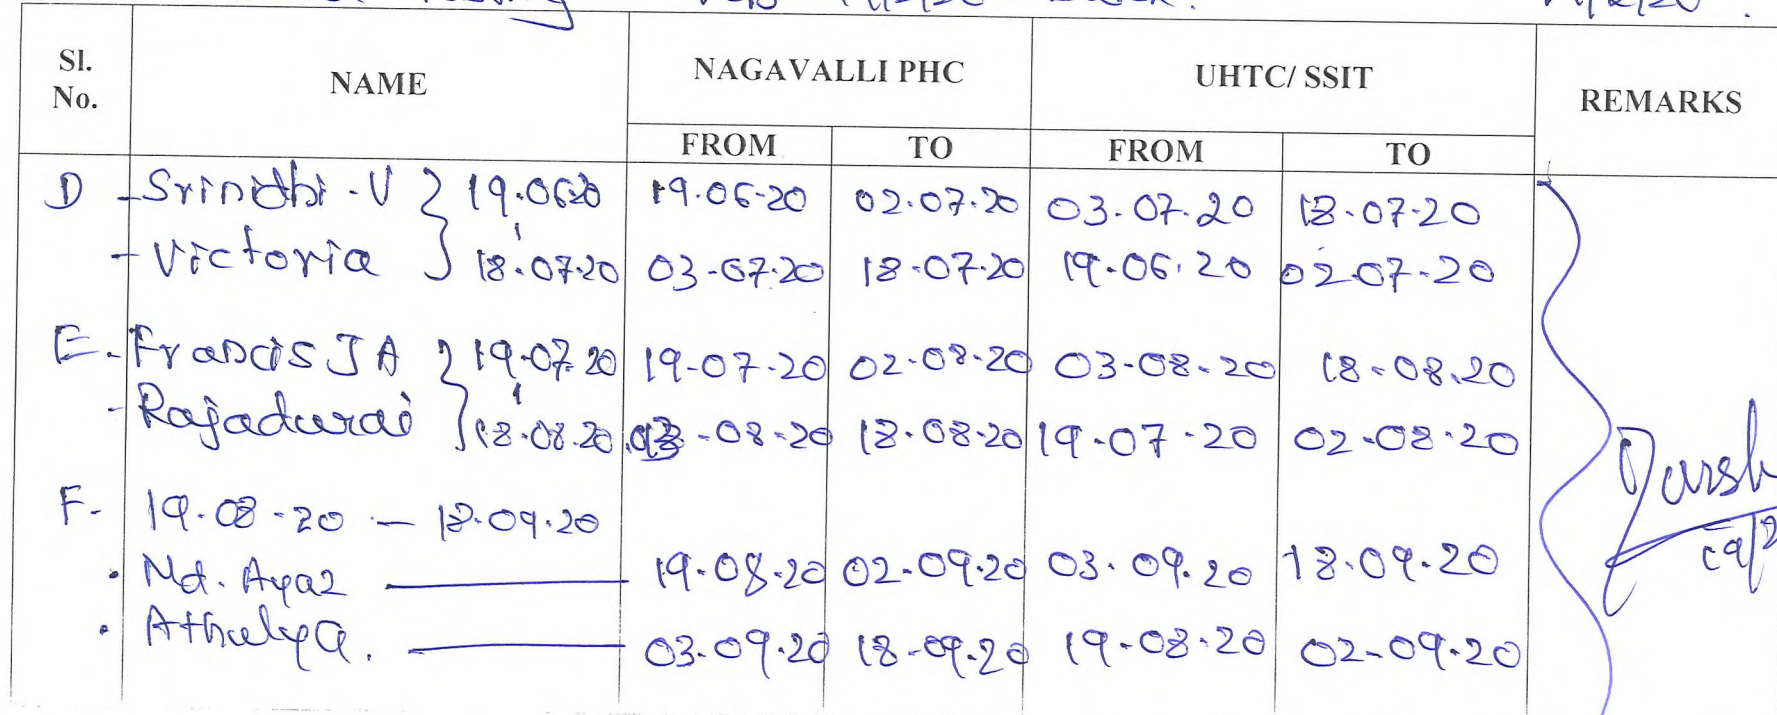 Sl. No. NAME NAGAVALLI PHC UHTC/ SSIT REMARKS
FROM TO FROM TO
D - Srinidhi - V } 19.06.20 19.06-20 02.07.20 03.07.20 18.07.20
- Victoria } 18.07.20 03-07.20 18.07.20 19.06.20 02.07.20
E - Francis J A } 19.07.20 19-07-20 02-08-20 03-08-20 18.08.20
- Rajadurai } 18.08.20 03-08-20 18.08.20 19-07-20 02-08-20
F- 19.08-20 — 18.09.20
· Md. Ayaz — 19.08.20 02-09.20 03.09.20 18.09.20
· Athulya. — 03.09.20 18-09.20 19-08-20 02-09.20